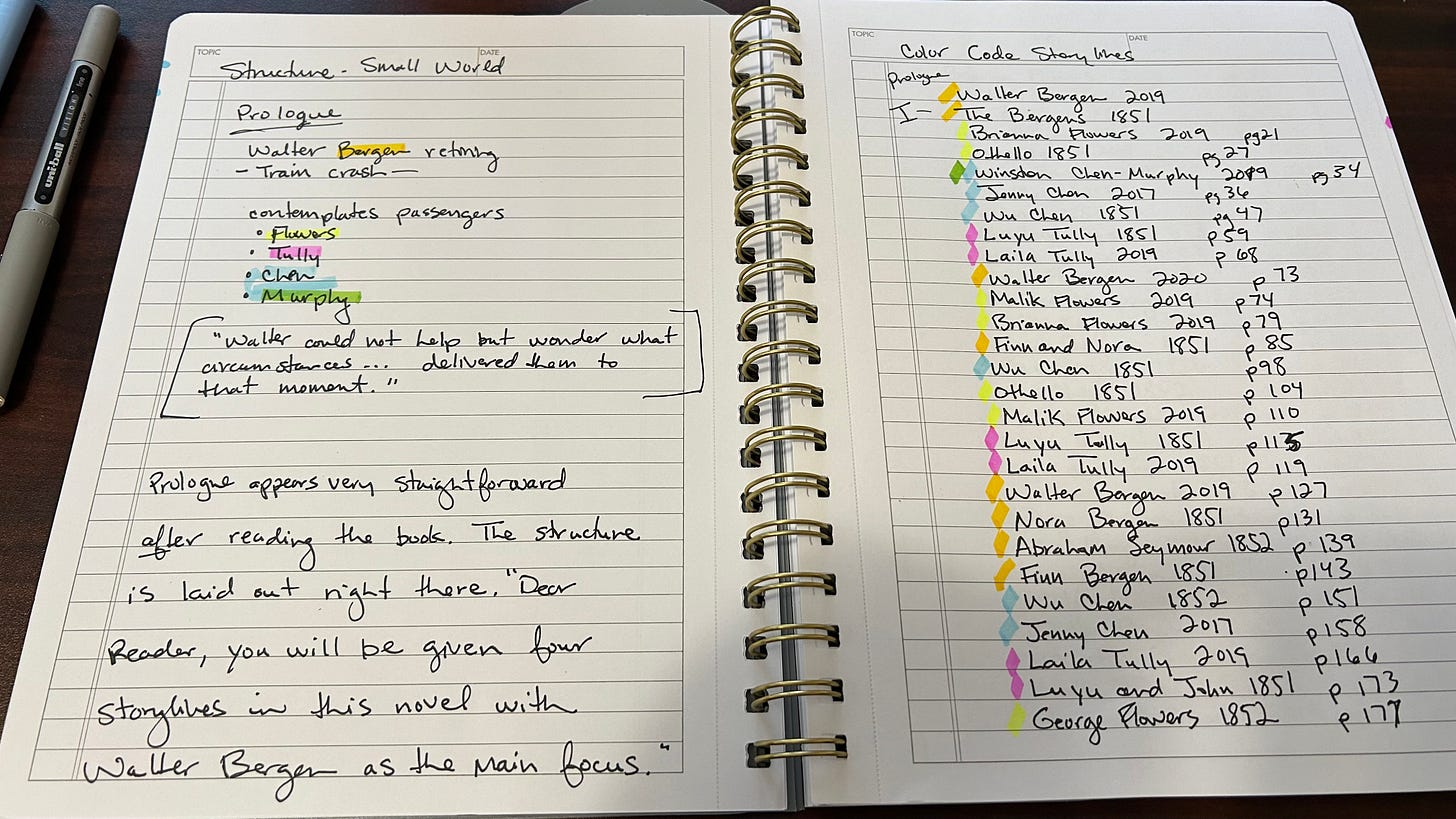 uni-ball
VISION
TOPIC
DATE
Structure - Small World
Prologue
Walter Bergen retiring
- Train crash -
contemplates passengers
• Flowers
• Tully
• Chen
• Murphy
"Walter could not help but wonder what
circumstances ... delivered them to
that moment."
Prologue appears very staightforward
after reading the book. The structure
is laid out right there. "Dear
Reader, you will be given four
storylines in this novel with
Walter Bergen as the main focus."
TOPIC
DATE
Color Code Storylines
Prologue
Walter Bergen 2019
I - The Bergens 1851
Brianna Flowers 2019 pg21
Othello 1851 pg 27
Winston Chen-Murphy 2019 pg 34
Jenny Chen 2017 pg 36
Wu Chen 1851 pg 47
Luyu Tully 1851 p 59
Laila Tully 2019 p 68
Walter Bergen 2020 p 73
Malik Flowers 2019 p 74
Brianna Flowers 2019 p 79
Finn and Nora 1851 p 85
Wu Chen 1851 p 98
Othello 1851 p 104
Malik Flowers 2019 p 110
Luyu Tully 1851 p 115
Laila Tully 2019 p 119
Walter Bergen 2019 p 127
Nora Bergen 1851 p 131
Abraham Seymour 1852 p 139
Finn Bergen 1851 p 143
Wu Chen 1852 p 151
Jenny Chen 2017 p 158
Laila Tully 2019 p 166
Luyu and John 1851 p 173
George Flowers 1852 p 177